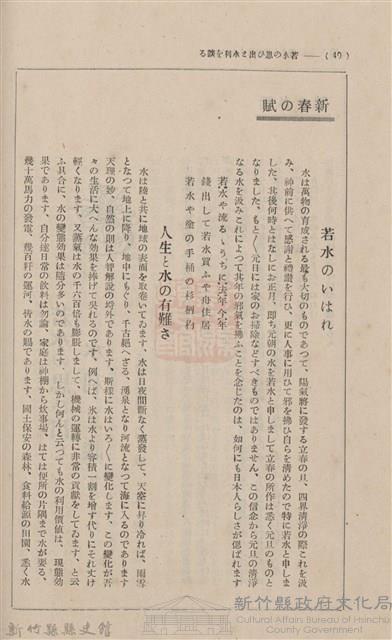 (40) ―― 若水の思ひ出と水利を語る
新春の賦
若水のいはれ
水は萬物の育成される最も大切のものであつて、陽氣將に發する立春の旦、四界清淨の際これを汲
み、神前に供へて感謝と禮讃を行ひ、更に人事に用ひて邪を拂ひ自らを清めたので特に若水と申しま
した、其後何時とはなしにお正月、即ち元朝の水を若水と申しまして立春の所作は悉く元旦のものと
なりました。もと〱元日には家のお掃除などすべきものではありません、この信念から元旦の清淨
なる水を汲みこれによつて其年の邪氣を拂ふことを念じたのは、如何にも日本人らしさが偲ばれます
若水や流るゝうちに去年今年
錢出して若水買ふや舟住居
若水や塗の手桶の杉柄杓
人生と水の有難さ
水は陸と共に地球の表面を取卷いてゐます、水は日夜間斷なく蒸發して、天空に昇り冷れば、雨雪
となつて地上に降り、地中にもぐり、千古絶へざる、湧泉となり河流となつて海に入るのであります
天理の妙、自然の則は人智解說の埒外であります、斯樣に水はいろ〱に變化します、この變化が吾
々の生活に大へんな効果を捧げて吳れるのです、例へば、氷は水より容積一割を增す代りにそれ丈け
輕くなります、又蒸氣は水の千六百倍も膨脹しまして、機械の運轉に非常の貢献をしてゐます、と云
ふ具合に、水の變態効果は隨分多いのであります――しかし何んと云つても水の利用價値は、現態効
果であります、自分達日常の飮料は勿論、家庭は神棚から炊事場、はては便所の片隅まで水が要る、
幾十萬馬力の發電、幾百粁の運河、皆水の賜であります、國土保安の森林、食料給源の田園、悉く水
新竹縣政府文化局
Cultural Affairs Bureau of Hsinchu
County Government
新竹縣縣史館